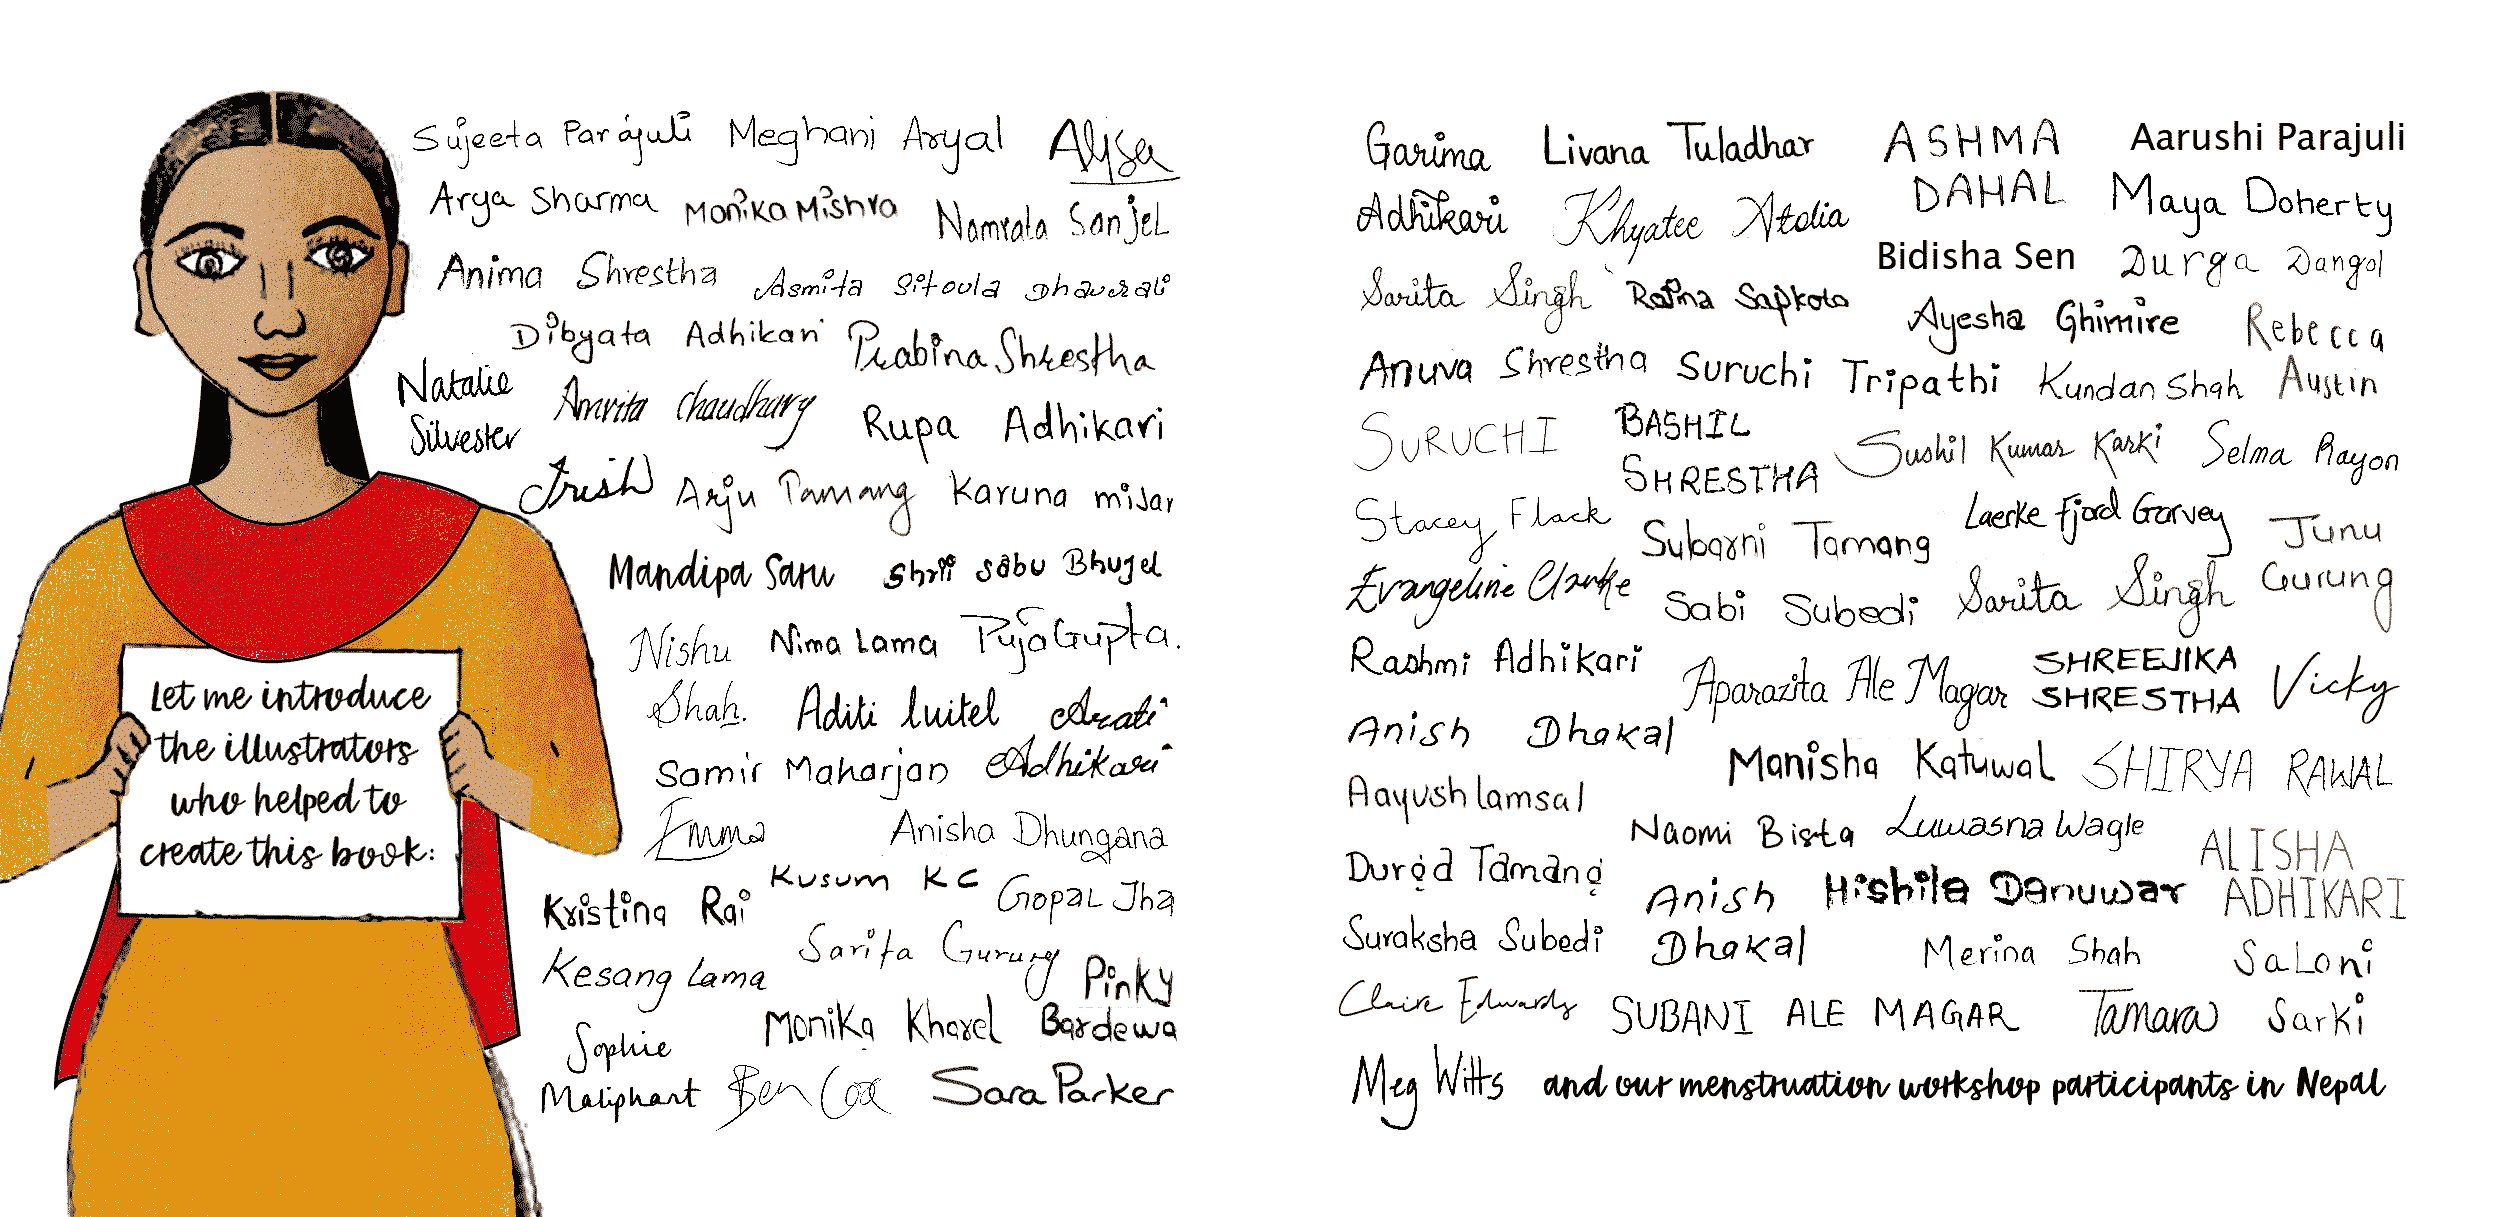 Let me introduce
the illustrators
who helped to
create this book:
Sujeeta Parajuli Meghani Aryal Alysa
Arya Sharma Monika Mishra Namrata Sanjel
Anima Shrestha Asmita Sitoula Dhaurali
Dibyata Adhikari Prabina Shrestha
Natalie
Silvester
Amrita Chaudhary Rupa Adhikari
Trish Arju Tamang Karuna Mijar
Mandipa Saru Shrii Sabu Bhujel
Nishu
Shah.
Nima Lama Puja Gupta.
Aditi Luitel Arati
Adhikari
Samir Maharjan
Emma Anisha Dhungana
Kristina Rai Kusum KC Gopal Jha
Kesang Lama Sarita Gurung Pinky
Bardewa
Sophie
Maliphant
Monika Kharel
Ben Cox Sara Parker
Garima
Adhikari
Livana Tuladhar ASHMA
DAHAL
Aarushi Parajuli
Khyatee Atolia Maya Doherty
Bidisha Sen Durga Dangol
Sarita Singh Rajina Sapkota Ayesha Ghimire Rebecca
Austin
Anuva Shrestha Suruchi Tripathi Kundan Shah
SURUCHI BASHIL
SHRESTHA
Sushil Kumar Karki Selma Rayon
Stacey Flack Subarni Tamang Laerke Fjord Garvey Junu
Gurung
Evangeline Clarke Sabi Subedi Sarita Singh
Rashmi Adhikari Aparazita Ale Magar SHREEJIKA
SHRESTHA
Vicky
Anish Dhakal Manisha Katuwal SHIRYA RAWAL
Aayush Lamsal Naomi Bista Luwasna Wagle ALISHA
ADHIKARI
Durga Tamang Anish
Dhakal
Hishila Danuwar
Suraksha Subedi Merina Shah Saloni
Sarki
Claire Edwards SUBANI ALE MAGAR Tamara
Meg Witts and our menstruation workshop participants in Nepal